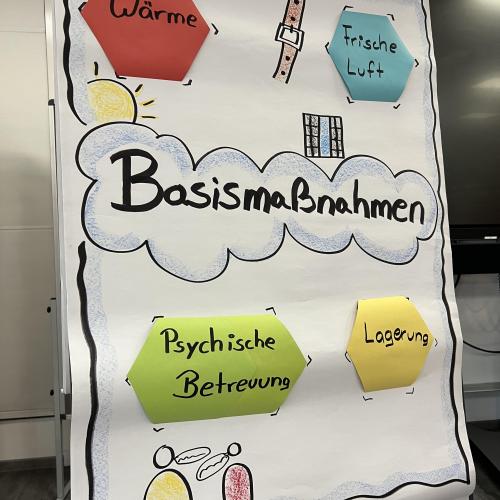 Wärme
Frische
Luft
Basismaßnahmen
Psychische
Betreuung
Lagerung